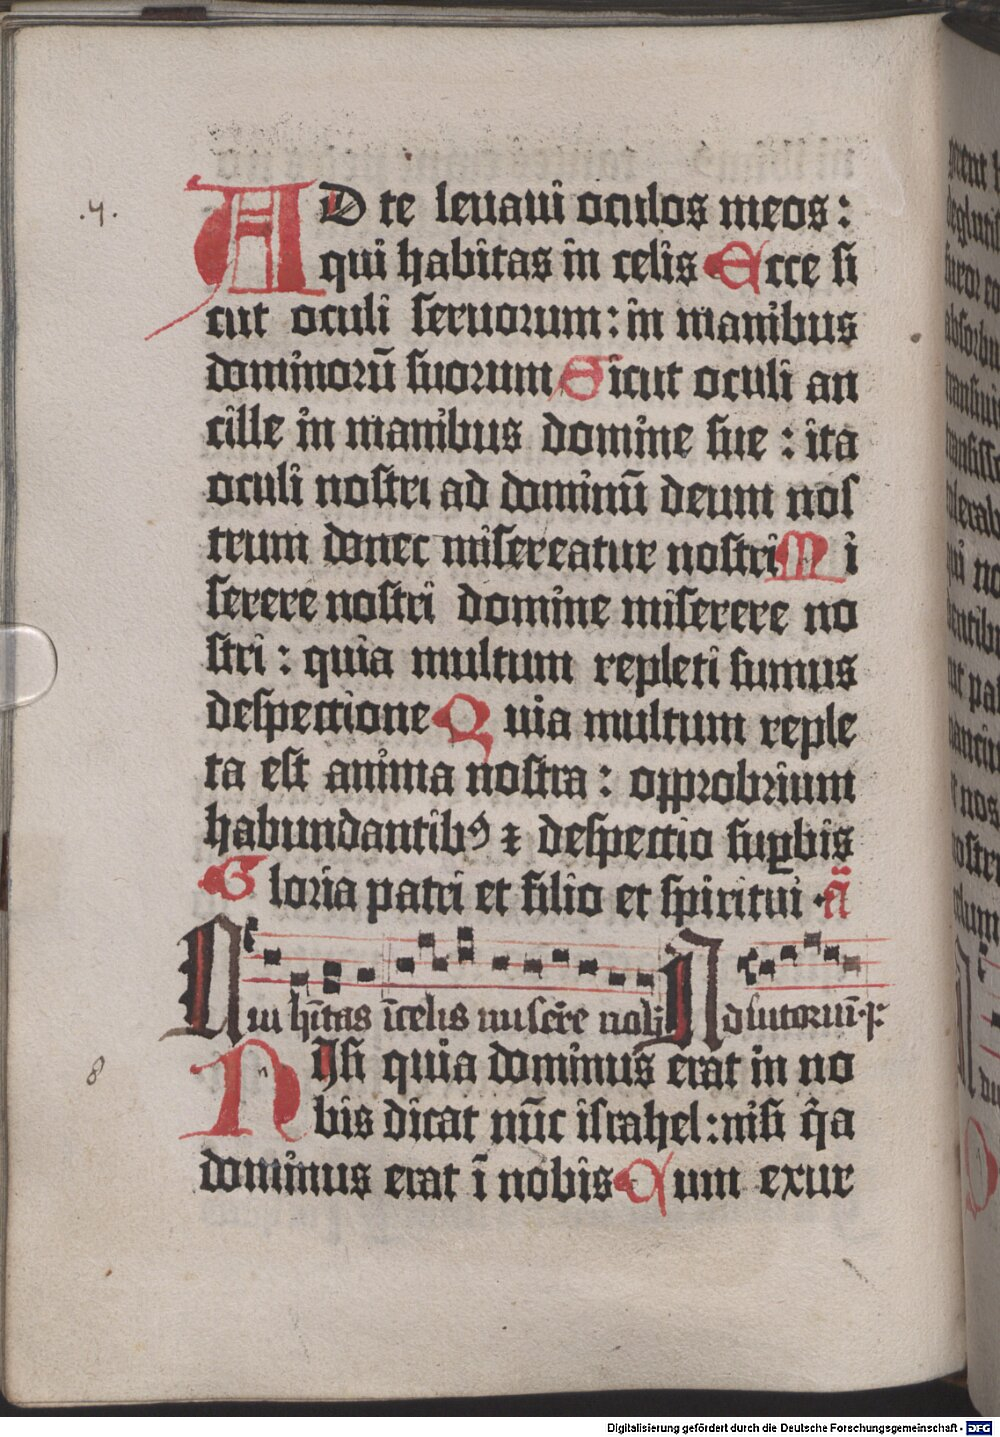 .4.
AD te leuaui oculos meos :
qui habitas in celis Ecce si
cut oculi seruorum : in manibus
dominorū suorum Sicut oculi an
cille in manibus domine sue : ita
oculi nostri ad dominū deum nos
trum donec misereatur nostri Mi
serere nostri domine miserere no
stri : quia multum repleti sumus
despectione Quia multum reple
ta est anima nostra : opprobrium
habundantibꝰ ⁊ despectio suꝑbis
Gloria patri et filio et spiritui · ā
Qui hītas īcelis miserere nobis Adiutoriū · p :
8
NIsi quia dominus erat in no
bis dicat nūc israhel : nisi q̄a
dominus erat ī nobis Cum exur
Digitalisierung gefördert durch die Deutsche Forschungsgemeinschaft - DFG